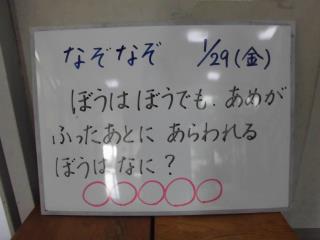 なぞなぞ 1/29(金)
ぼうはぼうでも、あめが
ふったあとに あらわれる
ぼうは なに?
○○○○○